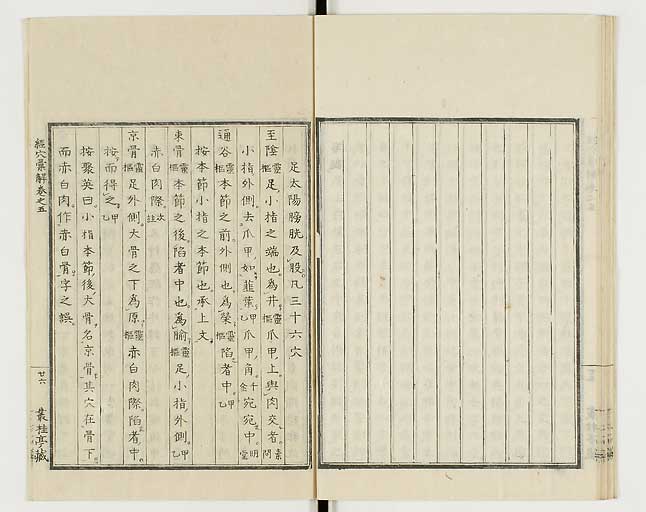 足太陽膀胱及股凡三十六穴
至陰靈樞足小指之端也為井靈樞爪甲上與肉交者素問
小指外側去爪甲如韮葉甲乙爪甲角千金宛宛中明堂
通谷靈樞本節之前外側也為滎靈樞陷者中甲乙
按本節小指之本節也承上文
束骨靈樞本節之後陷者中也為腧靈樞足小指外側甲乙
赤白肉際次註
京骨靈樞足外側大骨之下為原靈樞赤白肉際陷者中
按而得之甲乙
按聚英曰小指本節後大骨名京骨其穴在骨下
而赤白肉作赤白骨字之誤
經穴彙解卷之五
廿六
叢桂亭藏